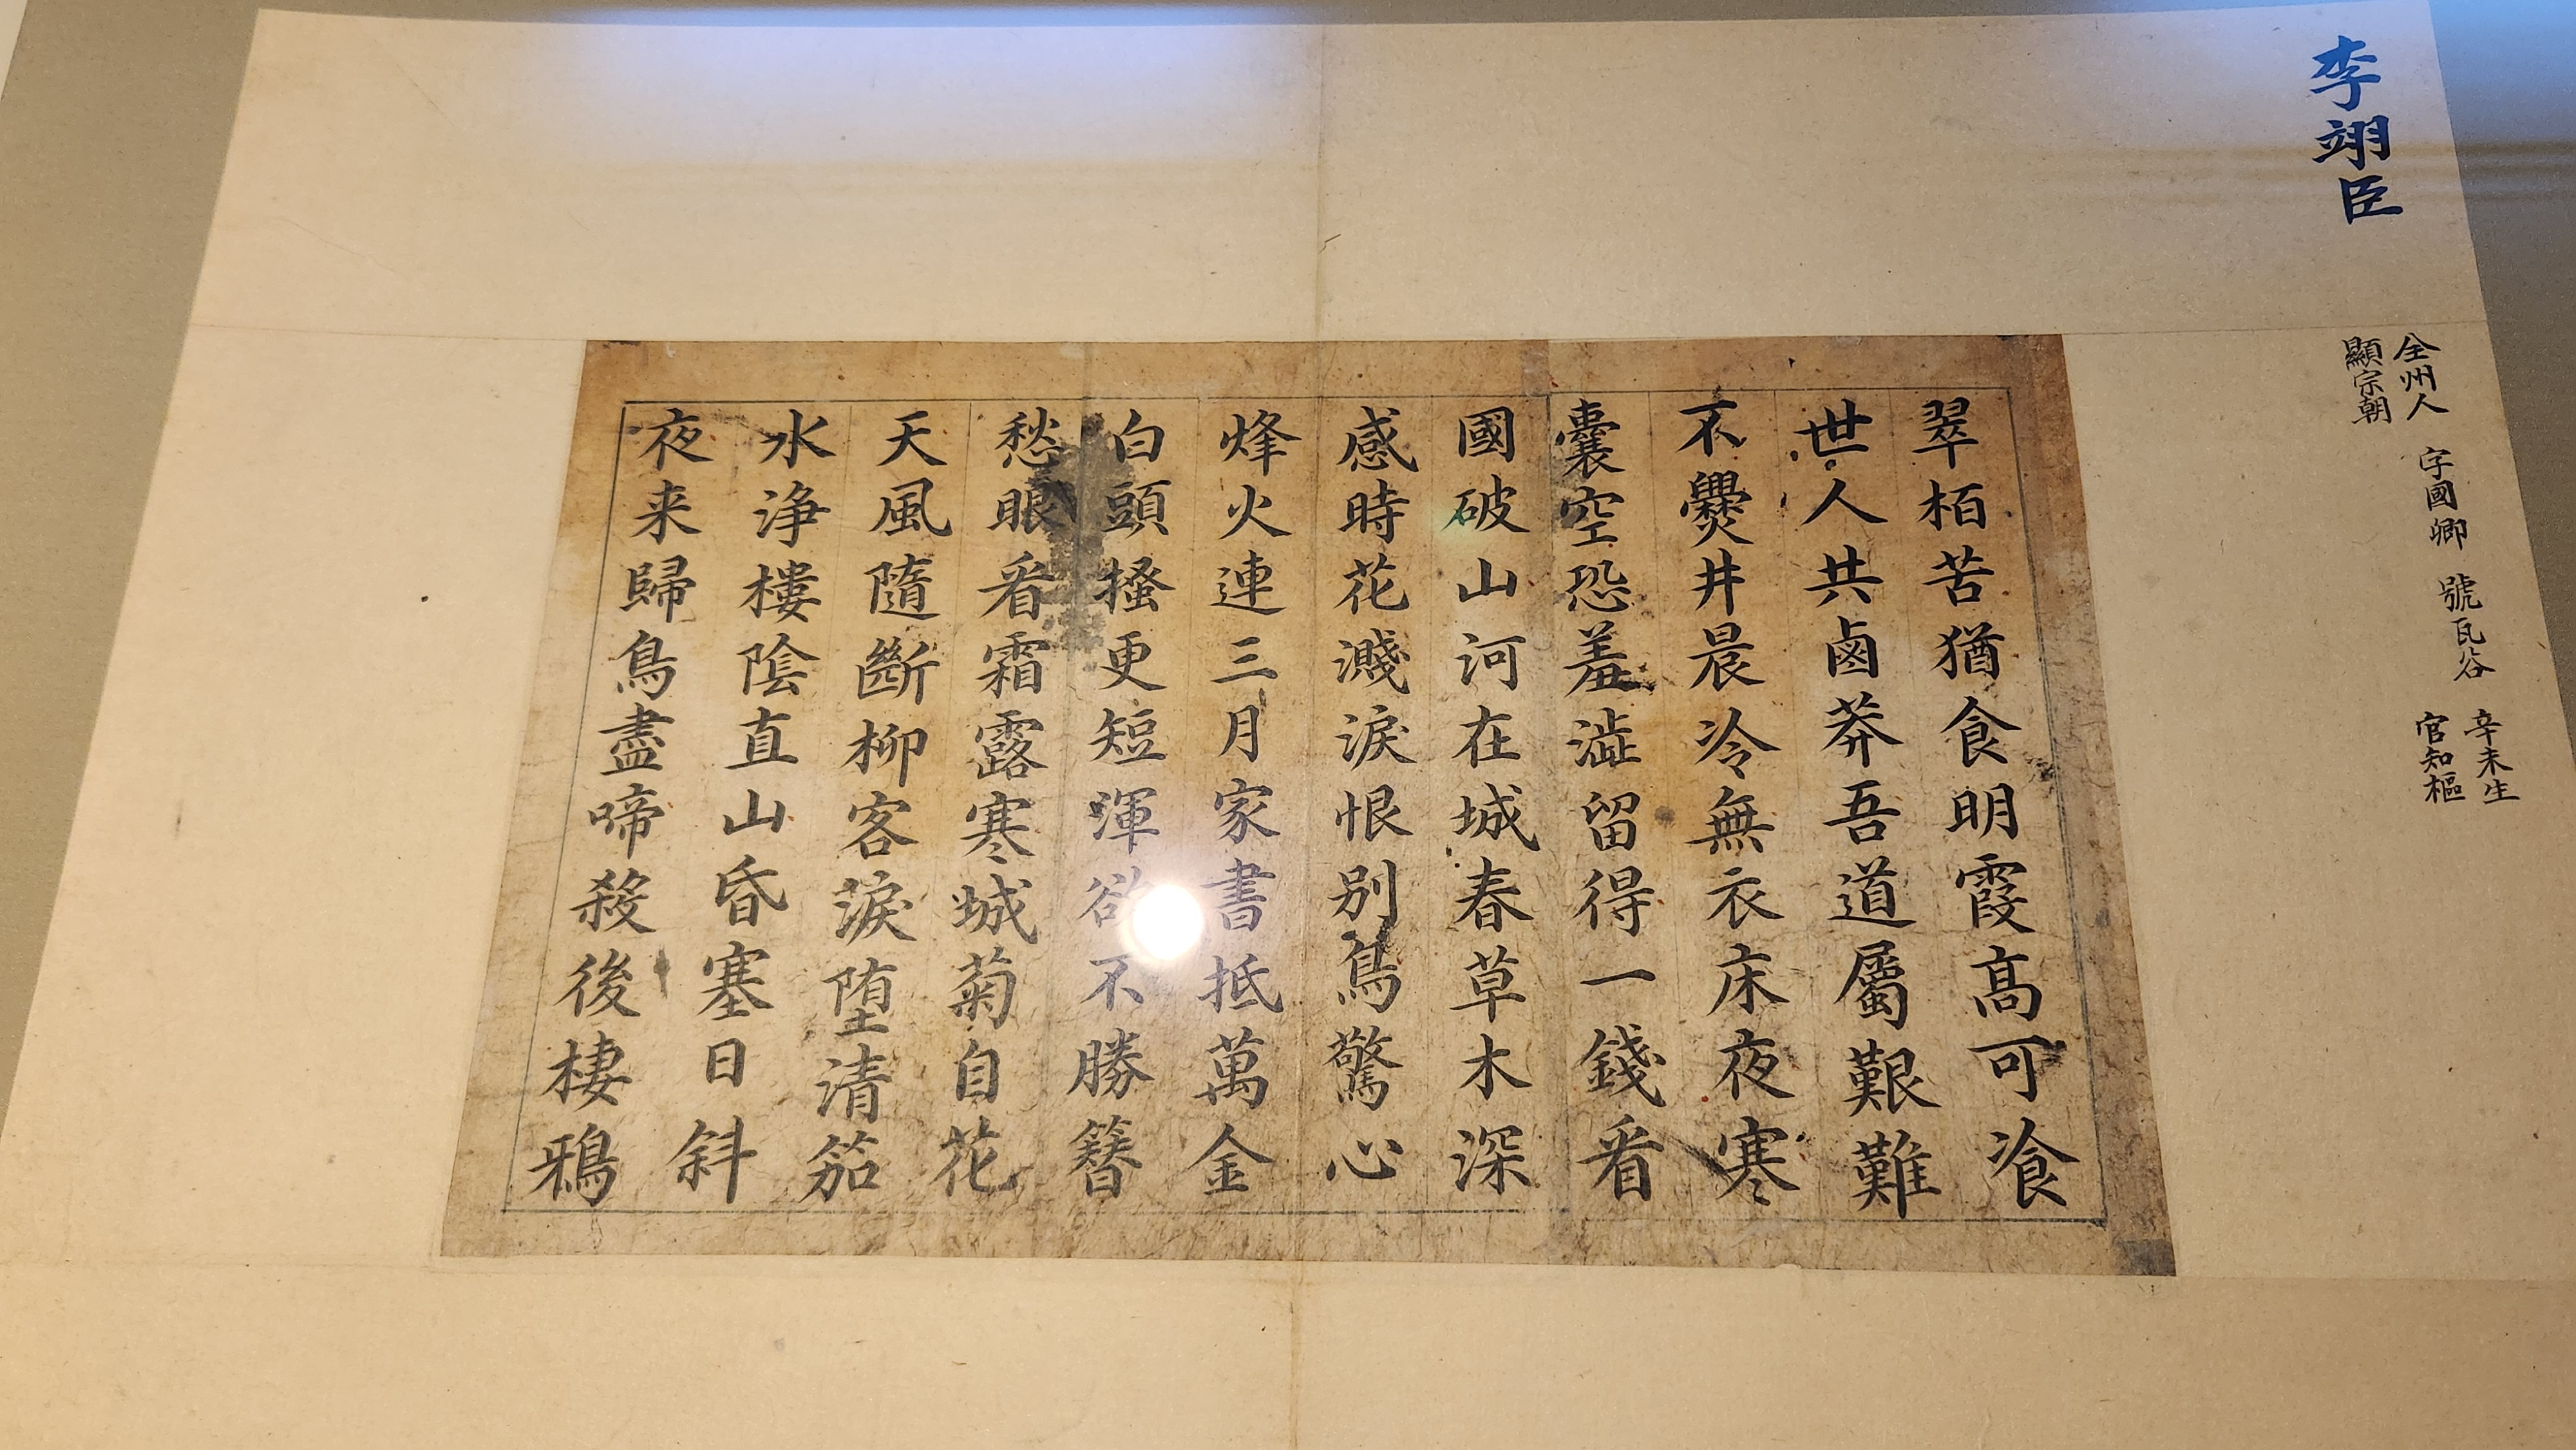 李翊臣
全州人
顯宗朝
字國卿
號瓦谷
辛未生
官知樞
翠栢苦猶食明霞高可飡
世人共鹵莽吾道屬艱難
不爨井晨冷無衣床夜寒
囊空恐羞澁留得一錢看
國破山河在城春草木深
感時花濺淚恨別鳥驚心
烽火連三月家書抵萬金
白頭搔更短渾欲不勝簪
愁眼看霜露寒城菊自花
天風隨斷柳客淚堕清笳
水浄樓陰直山昏塞日斜
夜来歸鳥盡啼殺後棲鴉